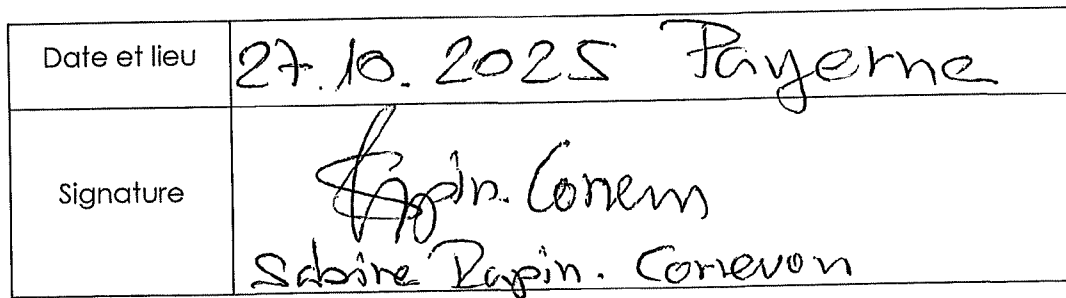 Date et lieu 27.10.2025 Payerne
Signature Rapin-Correvon
Sabine Rapin-Correvon